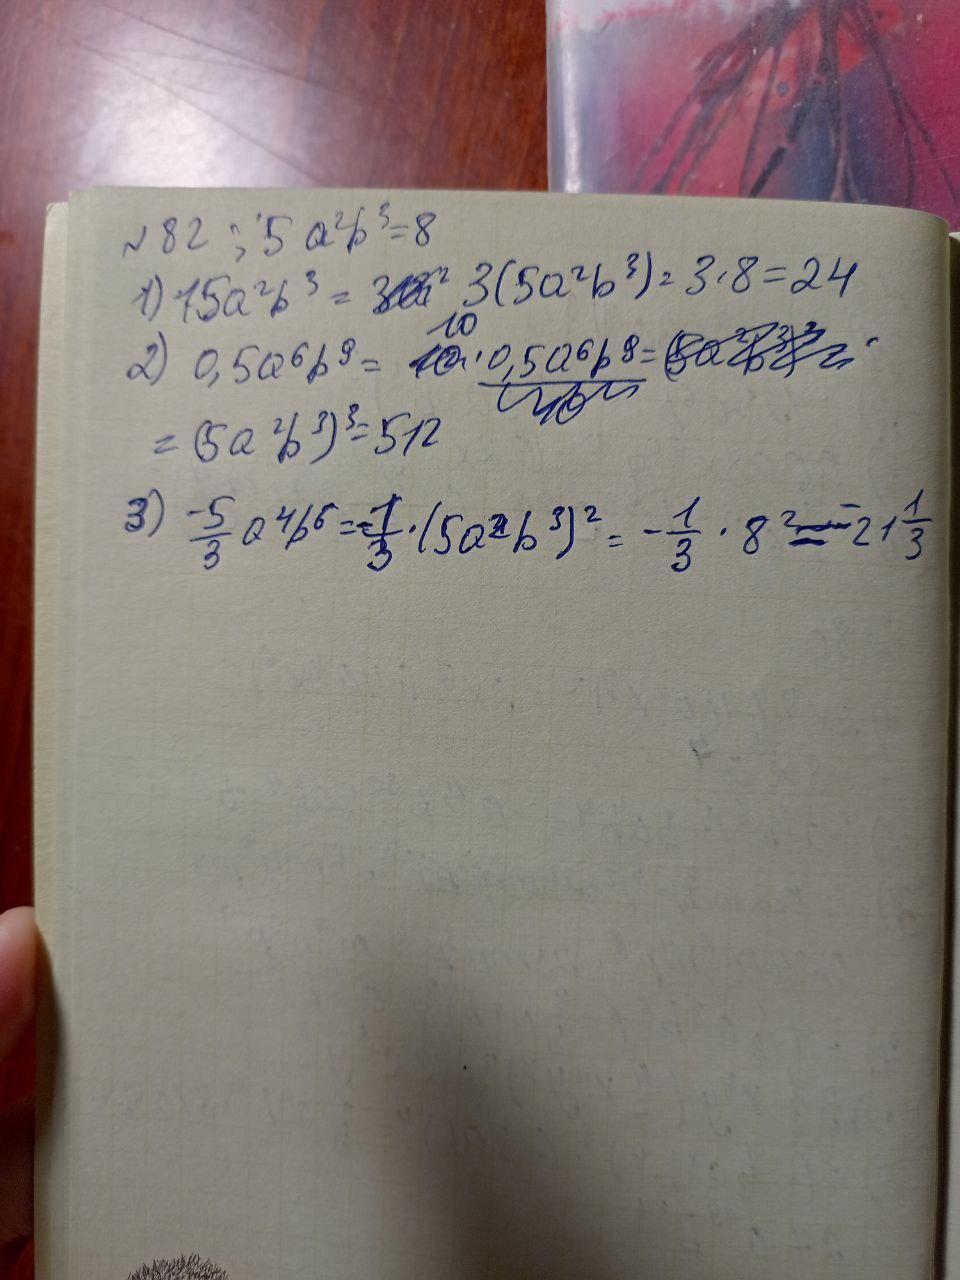 №82 ; 5a²b³=8
1) 15a²b³ = 3(5a²b³) = 3·8=24
2) 0,5a⁶b⁹ = 10·0,5a⁶b⁹=
= (5a²b³)³=512
3) -5/3 a⁴b⁶ = -1/3·(5a²b³)² = -1/3 · 8² = -21 1/3